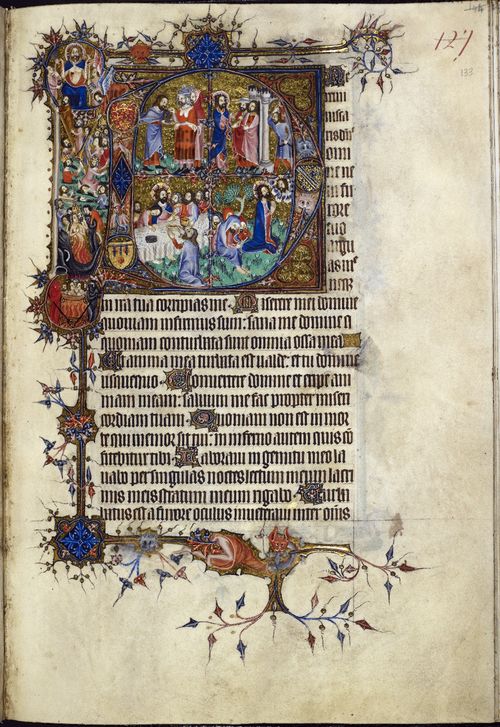 127
133
Ne
remi
nisca
ris dne
omi
ne ne
in fu
rore
tuo
argu
as me
neqz
in ira tua corripias me. Miserere mei domine
quoniam infirmus sum: sana me domine q
uoniam conturbata sunt omnia ossa mea
Et anima mea turbata est ualde: et tu domine
usquequo. Conuertere domine et eripe ani
mam meam: saluum me fac propter miseri
cordiam tuam. Quoniam non est in mor
te qui memor sit tui: in inferno autem quis cō
fitebitur tibi. Laboraui in gemitu meo la
uabo per singulas noctes lectum meum lacri
mis meis stratum meum rigabo. Turba
tus est a furore oculus meus: inueteraui inter om̄s